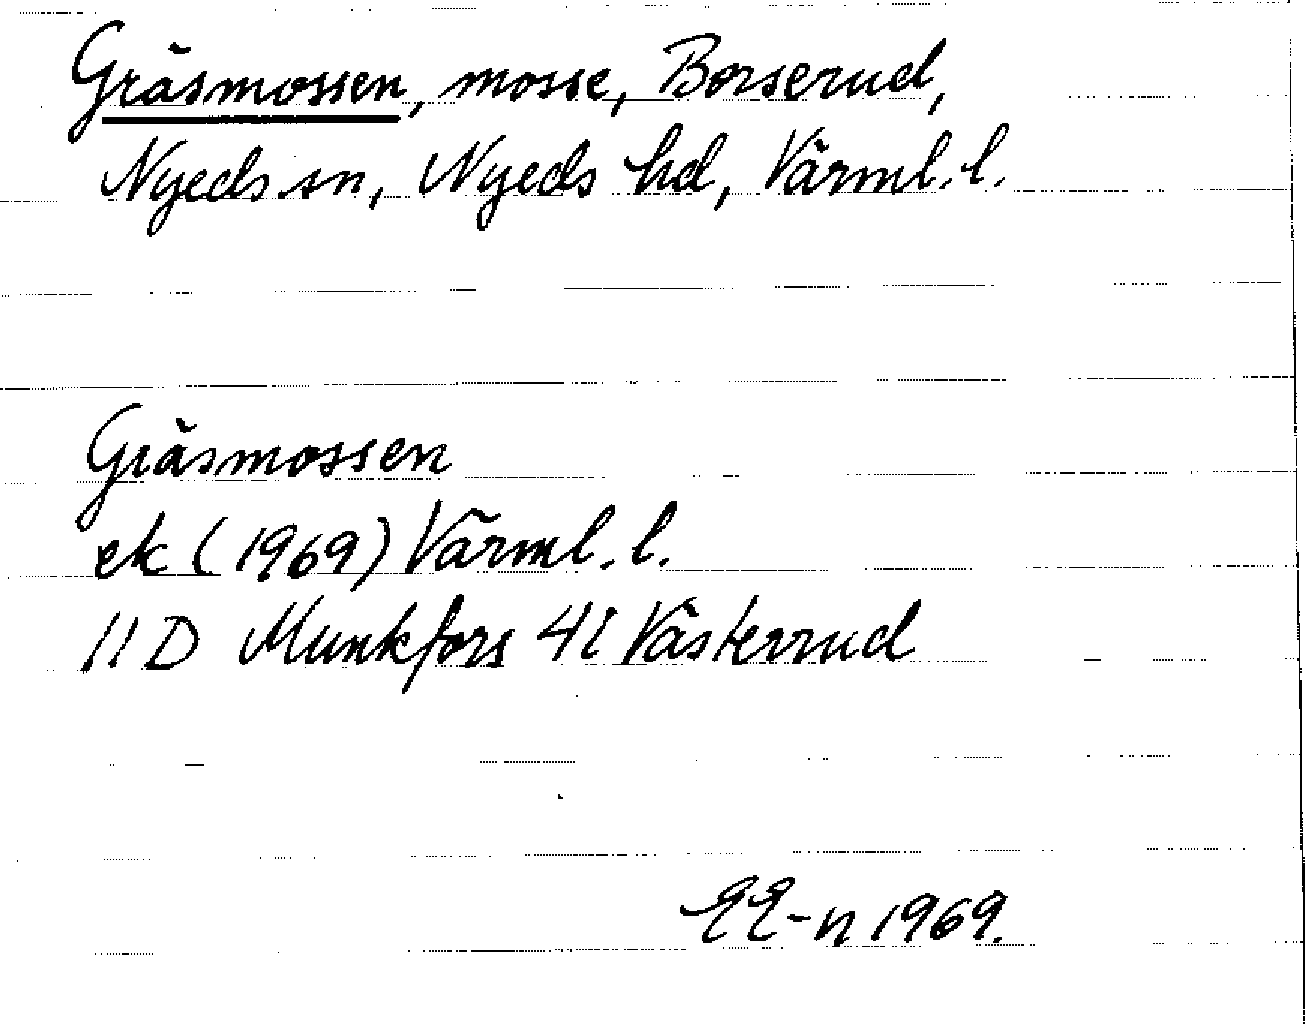 Gräsmossen, mosse, Borserud,
Nyeds sn, Nyeds hd, Värml. l.
Gräsmossen
ek (1969) Värml. l.
11 D Munkfors 4i Västerrud
EE-n 1969.